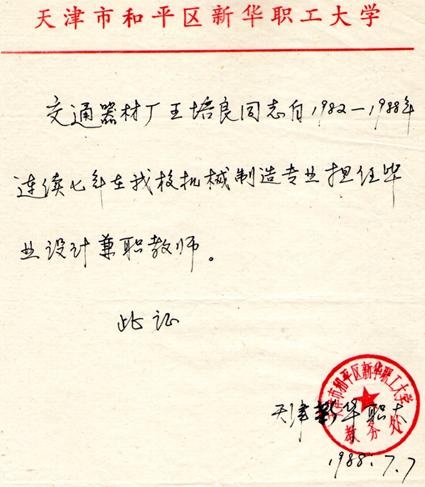 天津市和平区新华职工大学
交通器材厂王培良同志自1982—1988年
连续七年在我校机械制造专业担任毕
业设计兼职教师。
此证
天津新华职大
天津市和平区新华职工大学
教务处
1988.7.7